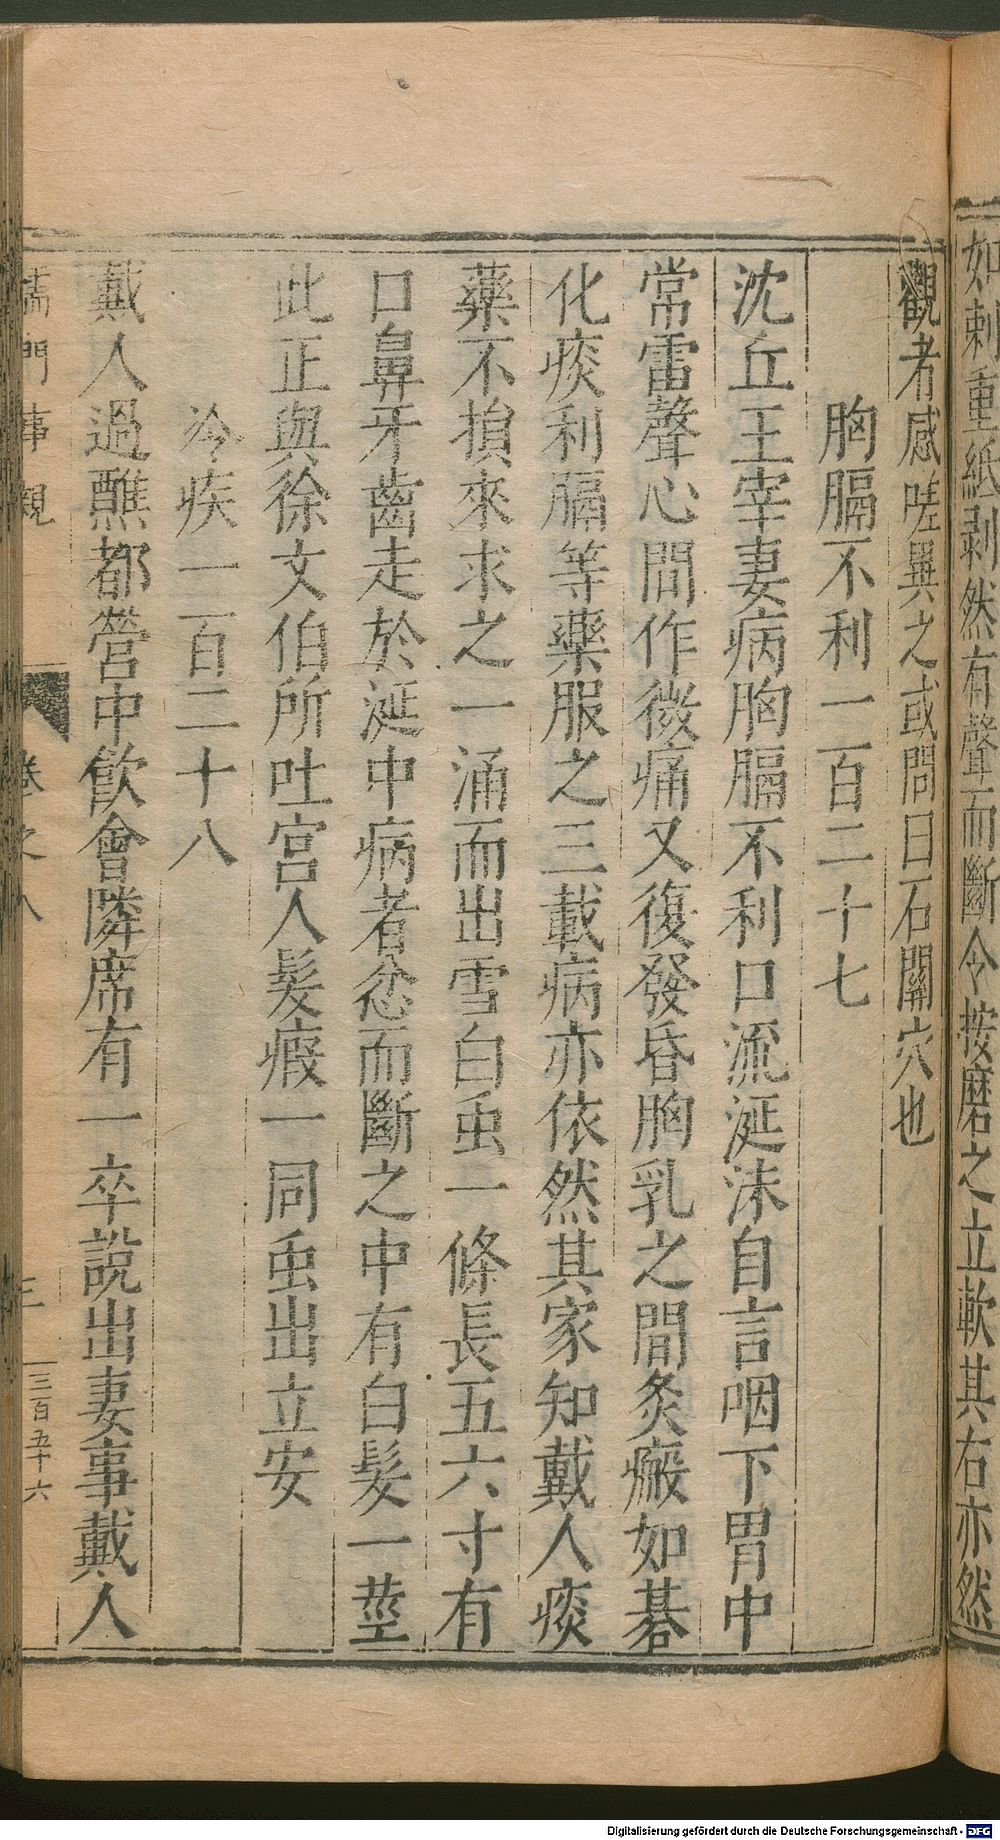 如刺重紙剥然有聲而斷令按磨之立軟其右亦然
觀者感嗟異之或問曰石關穴也
胸膈不利一百二十七
沈丘王宰妻病胸膈不利口流涎沫自言咽下胃中
常雷聲心間作微痛又復發昏胸乳之間灸瘢如碁
化痰利膈等藥服之三載病亦依然其家知戴人痰
藥不損來求之一涌而出雪白虫一條長五六寸有
口鼻牙齒走於涎中病者忿而斷之中有白髮一莖
此正與徐文伯所吐宮人髮瘕一同虫出立安
冷疾一百二十八
戴人過醮都營中飲會隣席有一卒說出妻事戴人
儒門事親 卷之八 三 三百五十六
Digitalisierung gefördert durch die Deutsche Forschungsgemeinschaft - DFG